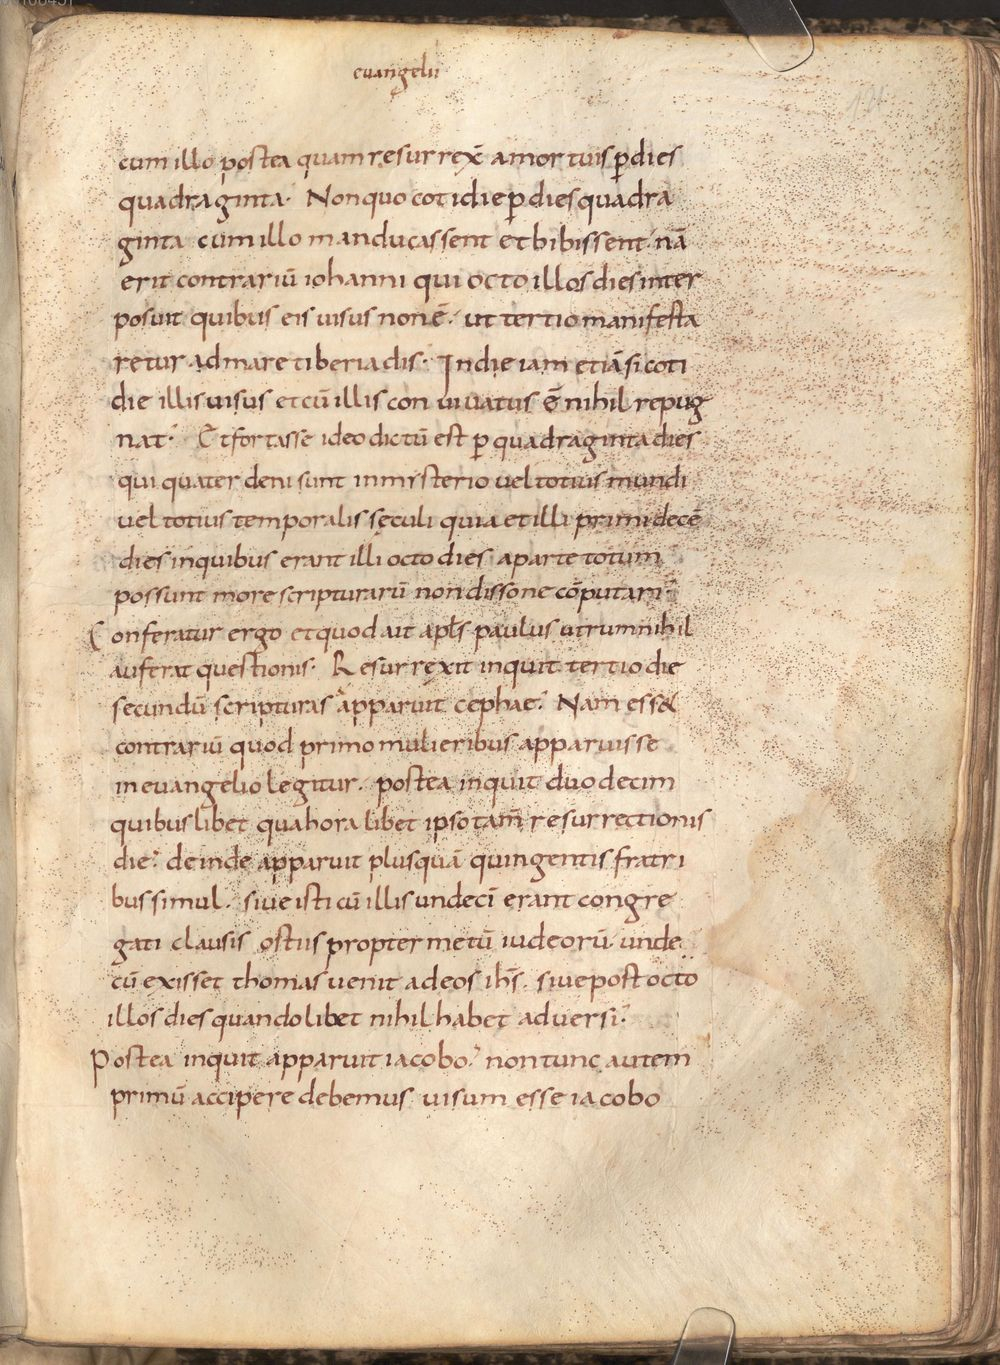 euangelii
cum illo postea quam resurrex̄ a mortuis p̱ dies
quadraginta· Non quo cotidie p̱ dies quadra
ginta cum illo manducassent et bibissent· nā
erit contrariū iohanni qui octo illos dies inter
posuit quibus eis uisus non ē· ut tertio manifesta
retur ad mare tiberiadis· Inde iam etiā si coti
die illis uisus et cū illis conuiuatus ē nihil repug
nat· Et fortasse ideo dictū est p̱ quadraginta dies
qui quater deni sunt in misterio uel totius mundi
uel totius temporalis sęculi quia et illi primi decē
dies in quibus erant illi octo dies a parte totum
possunt more scripturarū non dissone cōputari·
Conferatur ergo et quod ait apl̄s paulus utrum nihil
auferat questionis· Resurrexit inquit tertio die
secundū scripturas apparuit cephae· Nam ess&
contrariū quod primo mulieribus apparuisse
in euangelio legitur· postea inquit duodecim
quibuslibet qua hora libet ipso tam̄ resurrectionis
die· deinde apparuit plus quā quingentis fratri
bus simul· siue isti cū illis undecī erant congre
gati clausis ostiis propter metū iudeorū· unde
cū exisset thomas uenit ad eos ih̄s· siue post octo
illos dies quandolibet nihil habet aduersi·
Postea inquit apparuit iacobo· non tunc autem
primū accipere debemus uisum esse iacobo